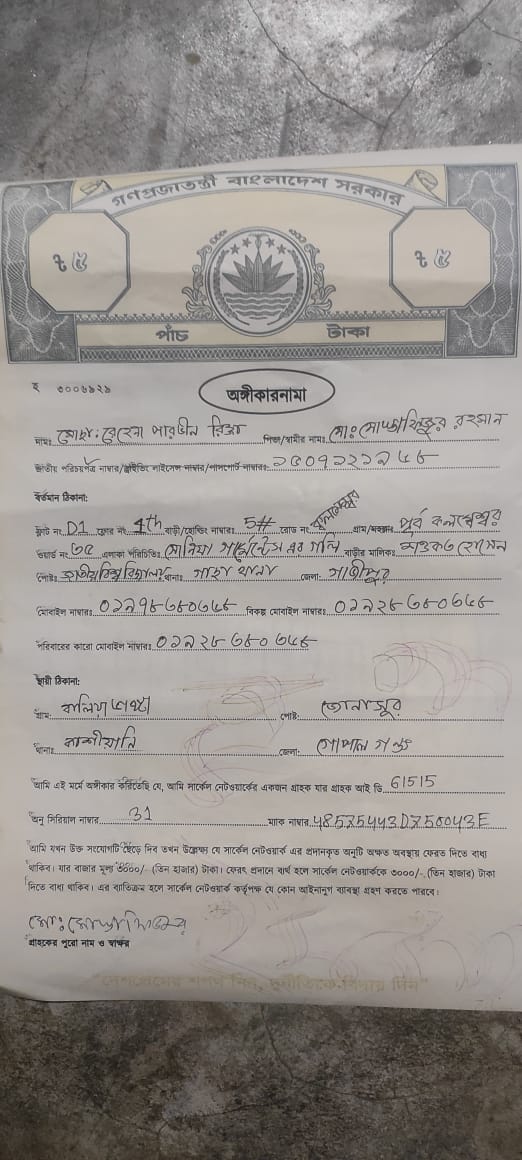 গণপ্রজাতন্ত্রী বাংলাদেশ সরকার
৳ ৫ ৳ ৫
পাঁচ টাকা
অঙ্গীকারনামা
নামঃ মোছা: রেহেনা পারভীন পিতা/স্বামীর নামঃ মোঃ রহমান
জাতীয় পরিচয়পত্র নাম্বার/ড্রাইভিং লাইসেন্স নাম্বার/পাসপোর্ট নাম্বারঃ
বর্তমান ঠিকানা:
ফ্লাট নং D1 ফ্লোর নং 4th বাড়ী/হোল্ডিং নাম্বারঃ 5# রোড নং কলমেশ্বর গ্রাম/মহল্লাঃ পূর্ব কলমেশ্বর
ওয়ার্ড নং ৩৫ এলাকা পরিচিতিঃ সোনিয়া গার্মেন্টস এর গলি বাড়ীর মালিকঃ শওকত হোসেন
পোষ্টঃ জাতীয় বিশ্ববিদ্যালয় থানাঃ গাছা থানা জেলা: গাজীপুর
মোবাইল নাম্বারঃ বিকল্প মোবাইল নাম্বারঃ
পরিবারের কারো মোবাইল নাম্বারঃ
স্থায়ী ঠিকানা:
গ্রাম: পোষ্ট:
থানাঃ কাশীয়ানি জেলা: গোপালগঞ্জ
আমি এই মর্মে অঙ্গীকার করিতেছি যে, আমি সার্কেল নেটওয়ার্কের একজন গ্রাহক যার গ্রাহক আই ডি 61515
অনু সিরিয়াল নাম্বার 31 ম্যাক নাম্বার 48575443D750043E
আমি যখন উক্ত সংযোগটি ছেড়ে দিব তখন উল্লেখ্য যে সার্কেল নেটওয়ার্ক এর প্রদানকৃত অনুটি অক্ষত অবস্থায় ফেরত দিতে বাধ্য
থাকিব। যার বাজার মূল্য ৩০০০/- (তিন হাজার) টাকা। ফেরৎ প্রদানে ব্যর্থ হলে সার্কেল নেটওয়ার্ককে ৩০০০/- (তিন হাজার) টাকা
দিতে বাধ্য থাকিব। এর ব্যতিক্রম হলে সার্কেল নেটওয়ার্ক কর্তৃপক্ষ যে কোন আইনানুগ ব্যবস্থা গ্রহণ করতে পারবে।
গ্রাহকের পুরো নাম ও স্বাক্ষর
"দেশপ্রেমের শপথ নিন, দুর্নীতিকে বিদায় দিন"